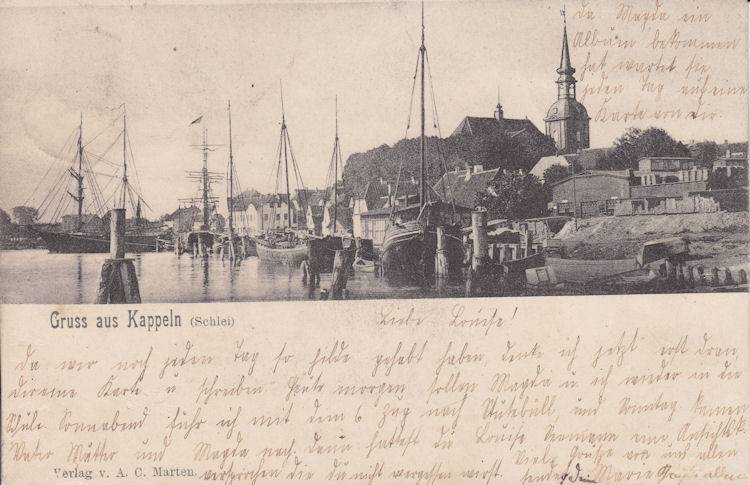 Da Magda ein
Album bekommen
hat wartet sie
jeden Tag auf eine
Karte von Dir.
Gruss aus Kappeln (Schlei)
Liebe Louise!
Da wir noch jeden Tag so hilde gehabt haben denke ich jetzt erst dran
dir eine Karte u schreiben Heute morgen sollen Magda u ich wieder in die
Schule. Sonnabend fuhr ich mit dem 6 Zug nach Stutebüll und Sonntag kamen
Vater Mutter und Magda nach. Dann hattest du Louise eine Ansichtsk
versprochen die du nicht vergessen wirst.
Viele Grüsse von uns allen
sendet Dein Marie
Verlag v. A. C. Marten.